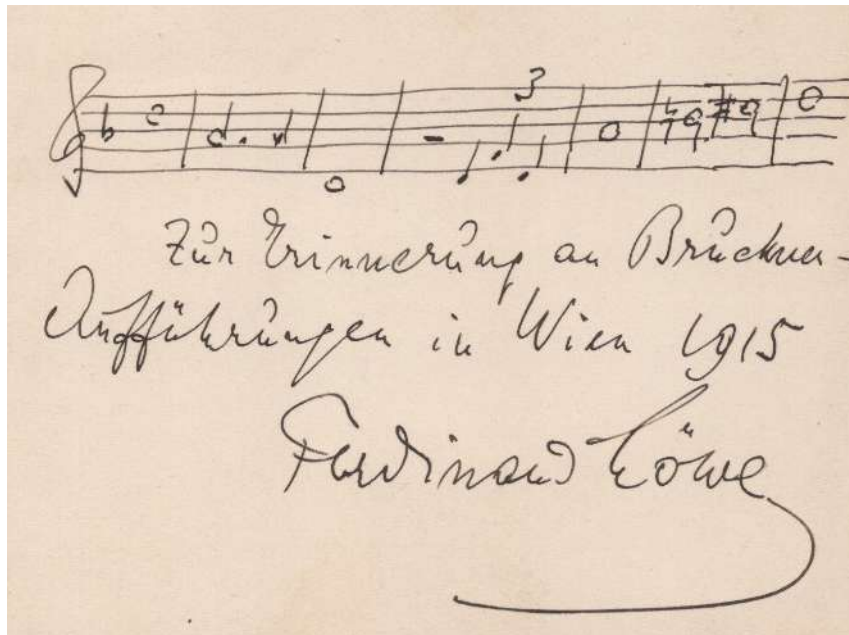 3
Zur Erinnerung an Bruckner-
Aufführungen in Wien 1915
Ferdinand Löwe